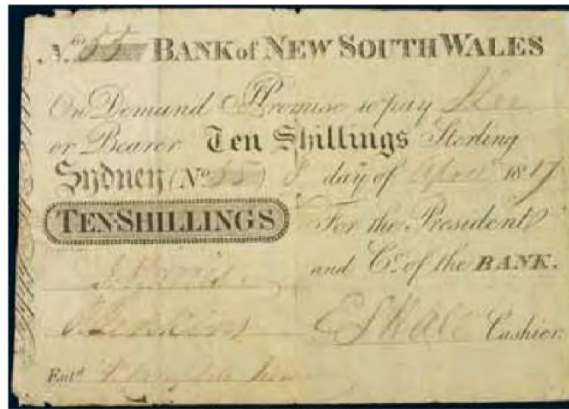 No. 55 BANK of NEW SOUTH WALES
On Demand I Promise to pay
or Bearer Ten Shillings Sterling
Sydney (No. 55) 8 day of April 1817
TEN-SHILLINGS
For the President
and Co. of the BANK.
Jenkins
E S Hall Cashier
Entd.